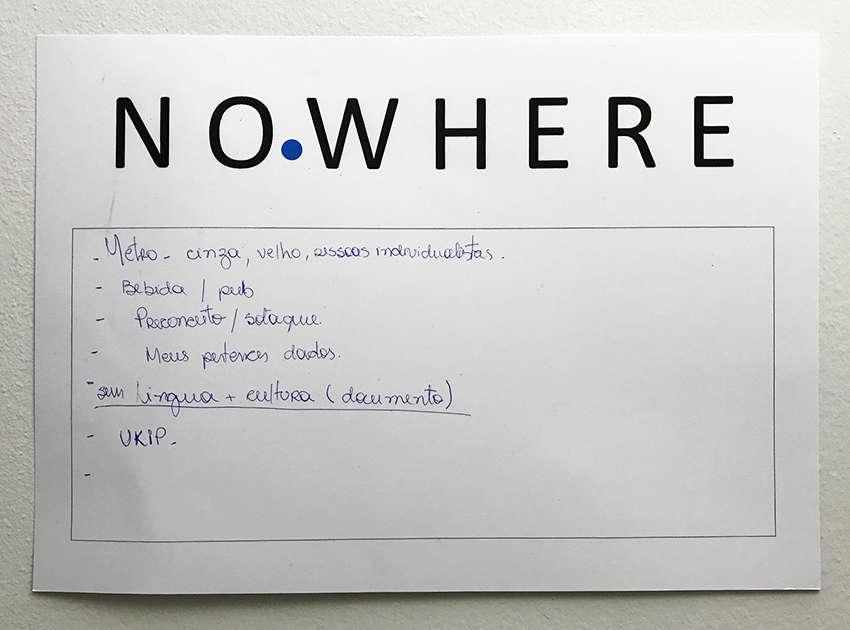 NO.WHERE
- Metro - cinza, velho, pessoas individualistas.
- Bebida / pub
- Preconceito / sotaque.
- Meus pertences dados.
- sem língua + cultura (documento)
- UKIP -
-